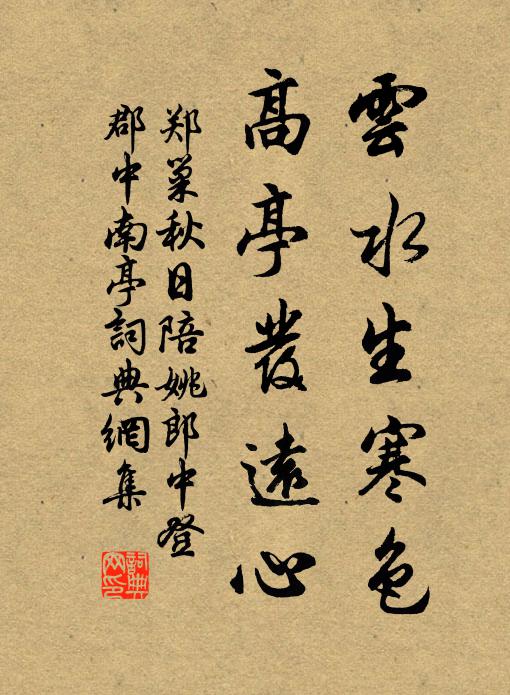 雲水生寒色
高亭發遠心
郑巢秋日陪姚郎中登
郡中南亭詞典網集
詞典
网印